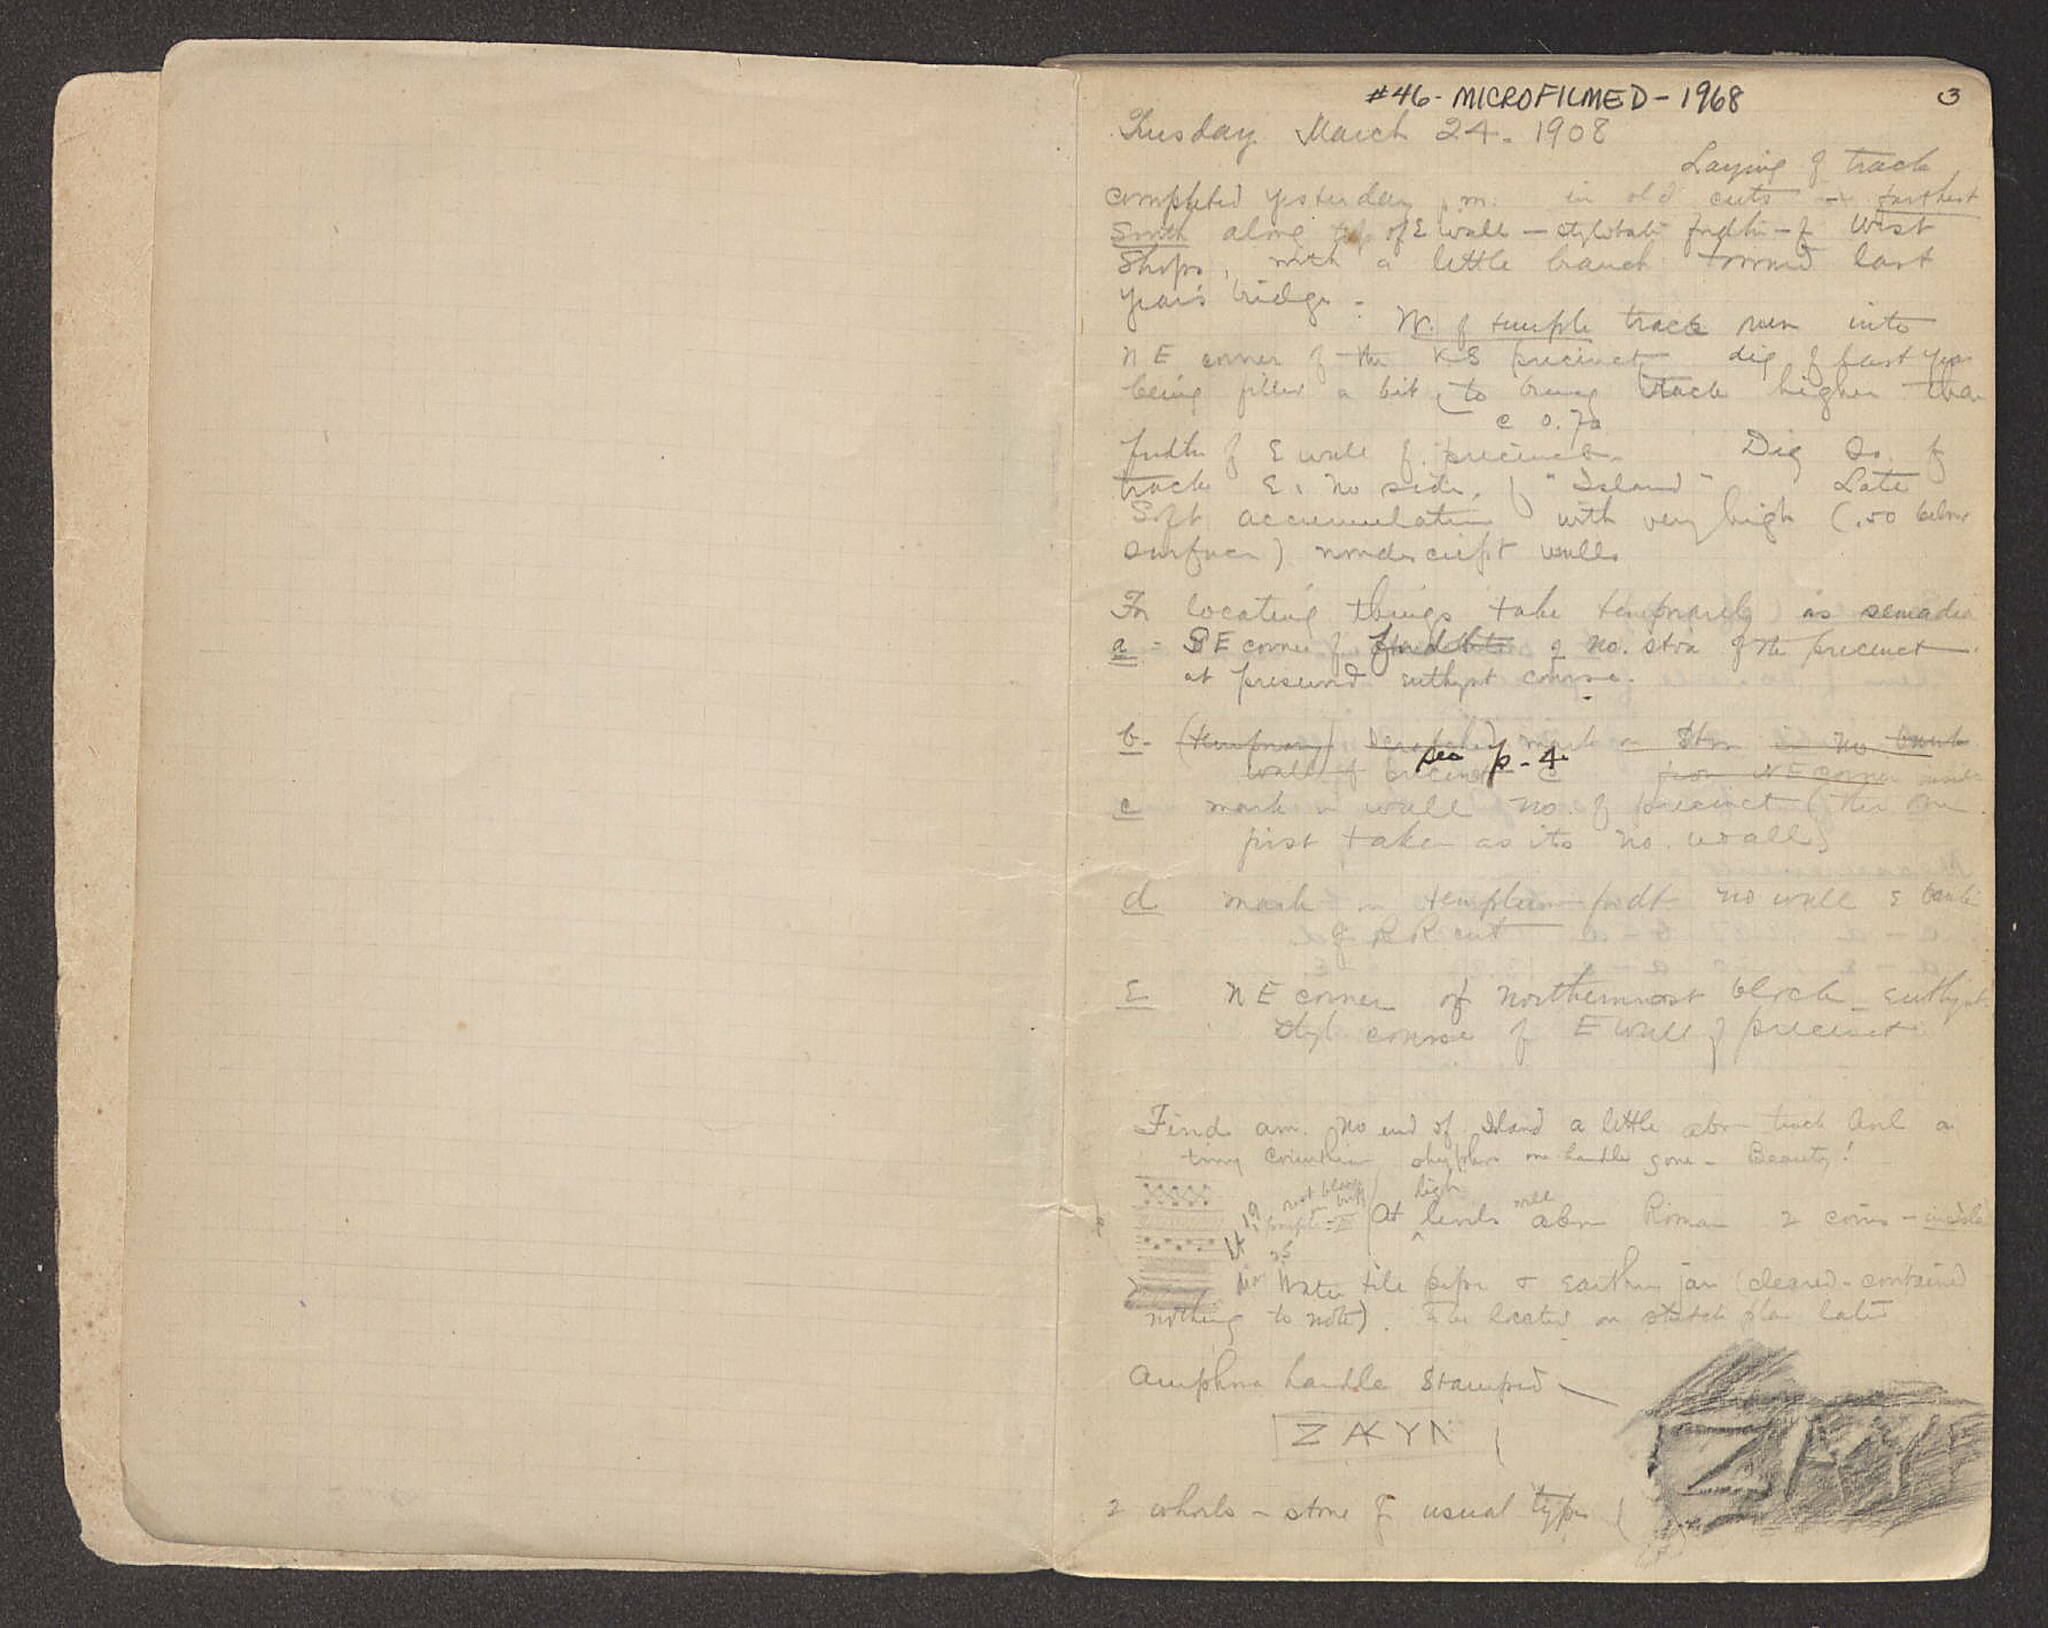 #46 - MICROFILMED - 1968
3
Tuesday March 24. 1908
Laying of track
completed yesterday m. in old cuts farthest
South along top of E wall — stylobate fndtn — of West
Shops, with a little branch toward last
year's bridge.
W. of temple track run into
NE corner of the precinct dig of last year
being filled a bit, to bring track higher than
c 0.70
fndtn of E wall of precinct. Dig So. of
track E. No side, of "Island" Late
Soft accumulation with very high (.50 below
surface) nondescript walls
For locating things take temporarily as
a = SE corner of of No. stoa of the precinct
at preserved euthynt course.
b - (temporary) mark on in No bank
see p. 4
wall of precinct from NE corner
c mark on wall No. of precinct (the one
first taken as its No. wall)
d mark on fndt No wall E bank
of RR cut
E NE corner of Northernmost block - euthynt.
styl course of E wall of precinct
Find am. No end of Island a little above track level a
tiny Corinthian skyphos one handle gone - Beauty!
high
At levels well above Roman 2 coins -
Water tile pipe + earthen jar (cleared - contained
nothing to note). To be located on sketch plan later
Amphora handle stamped —
ZAKYN
ZAKY
2 whorls - stone of usual type